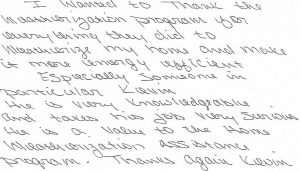 I Wanted to Thank the
Weatherization program for
everything they did to
Weatherize my home and make
it more energy efficient
Especially Someone in
particular Kevin
He is Very Knowledgeable
and takes his job very serious
He is a Value to the Home
Weatherization Assistance
program. Thanks Again Kevin